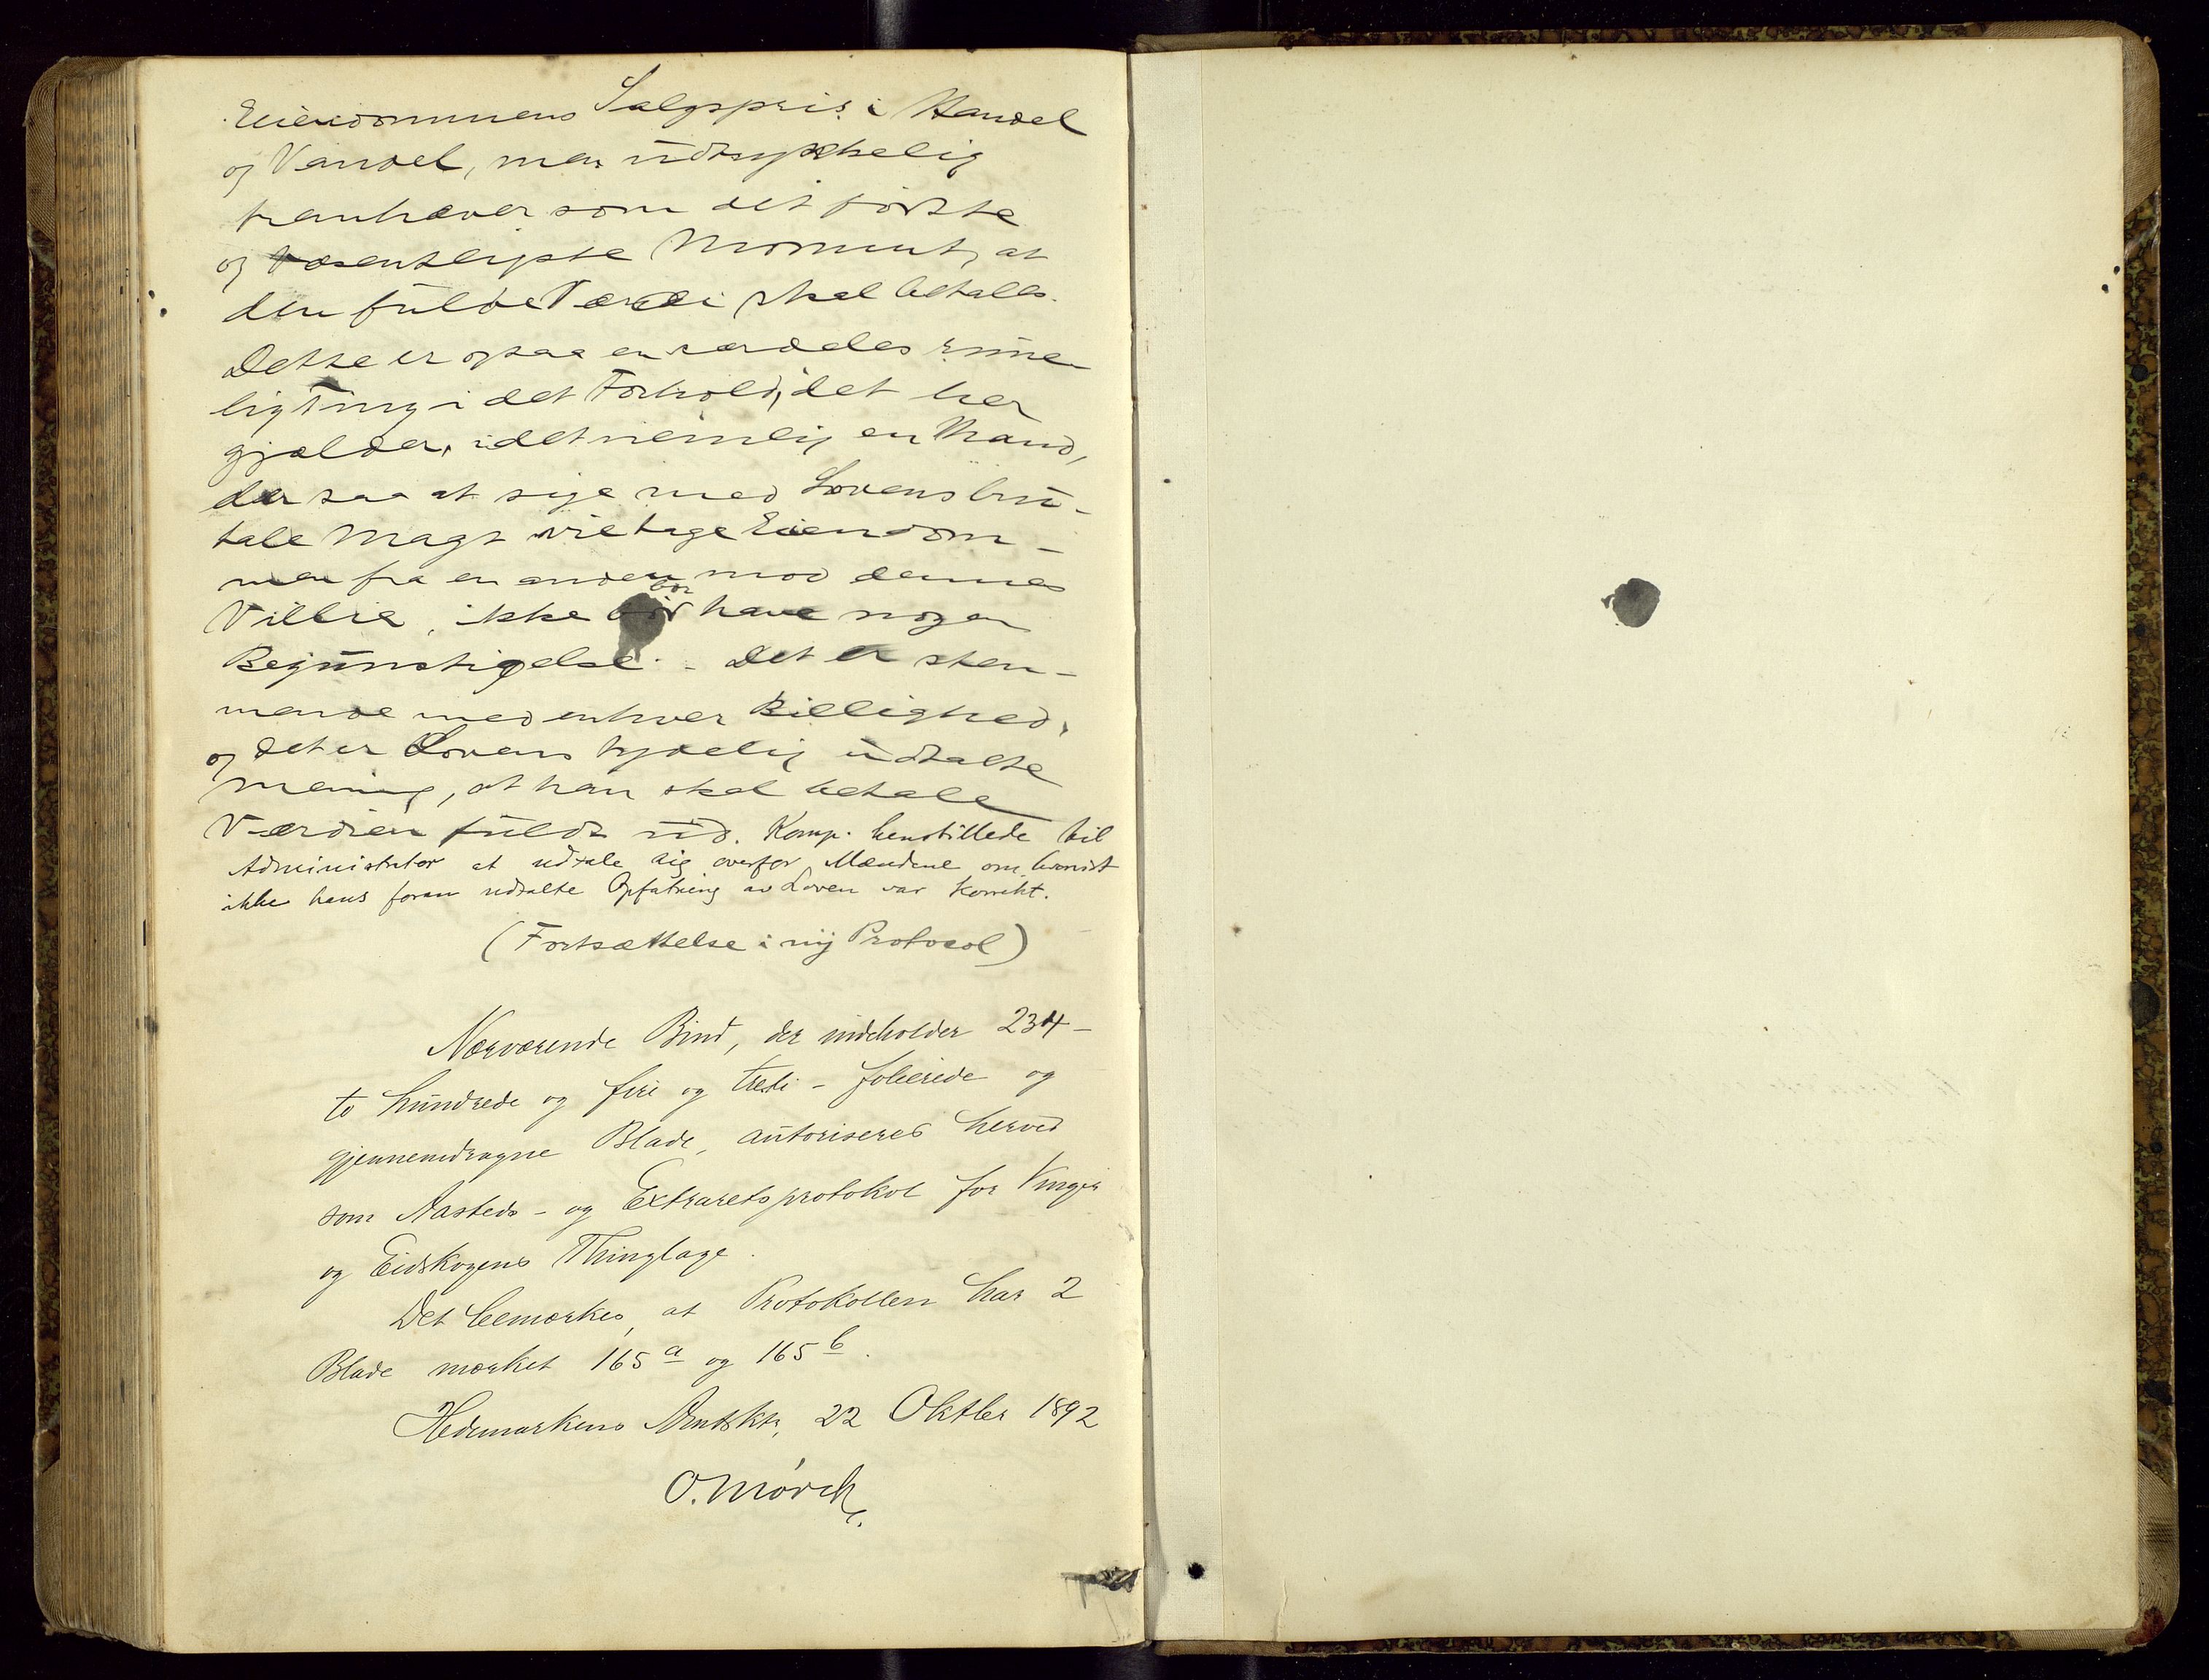 Eiendommens Salgspris i Handel
og Vandel, men udtrykkelig
fremhæver som det første
og væsentligste Moment, at
den fulde Værdi skal betales.
Dette er ogsaa en særdeles rime-
lig Ting i det Forhold, det her
gjælder, idet nemlig en Mand,
der saa at sige med Lovens bru-
tale Magt vil tage Eiendom-
men fra en anden mod dennes
Villie, ikke bør have nogen
Begunstigelse. - Det er stem-
mende med enhver Billighed,
og det er Lovens tydelig udtalte
Mening, at han skal betale
Værdien fuldt ud. Komp. henstillede til
Administrator at udtale sig overfor Mændene om hvorvidt
ikke hans foran udtalte Opfatning av Loven var korrekt.
(Fortsættelse i ny Protocol)
Nærværende Bind, der indeholder 234 -
to hundrede og fire og treti - folierede og
gjennemdragne Blade, autoriseres herved
som Aasteds- og Extraretsprotokol for Vinger
og Eidskogens Thinglage.
Det bemærkes, at Protokollen har 2
Blade mærket 165 a og 165 b.
Hedemarkens Amtskt. 22 Oktber 1892
O. Mørch.